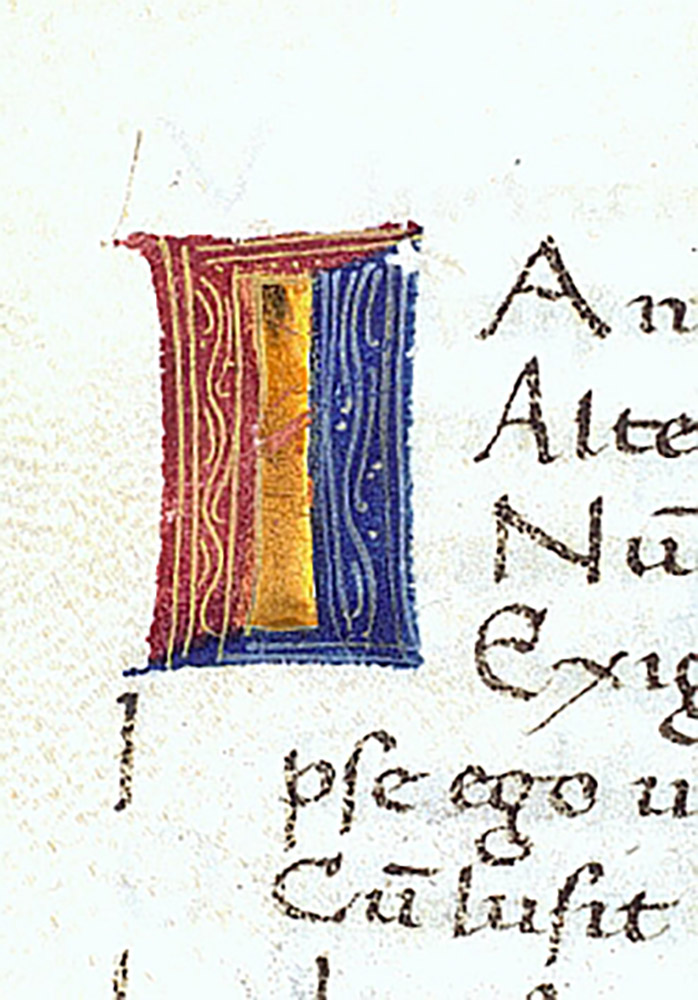 I An
Alte
Nū
Exig
I pſe ego u
Cū luſit